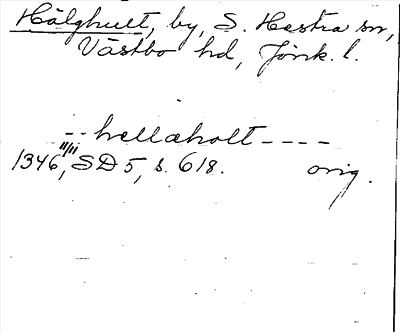 Hälghult, by, S. Hestra sn,
Västbo hd, Jönk. l.
-- hellæholt ----
11/11
1346, SD 5, s. 618. orig.